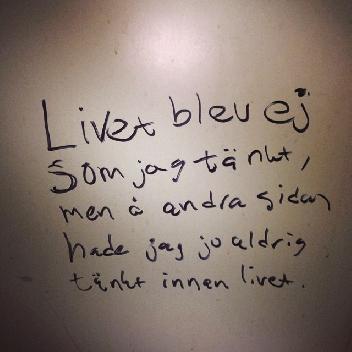 Livet blev ej
Som jag tänkt,
men å andra sidan
hade jag ju aldrig
tänkt innan livet.